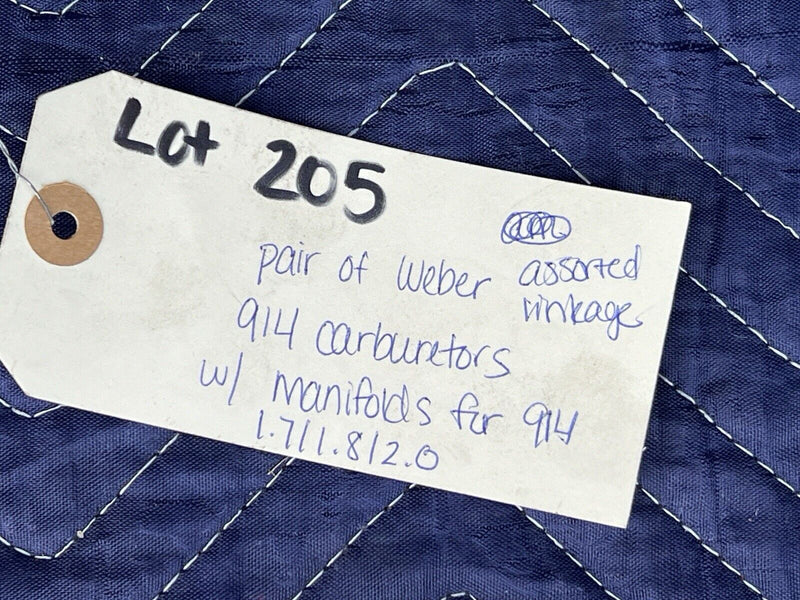 Lot 205
pair of Weber assorted
linkage
914 carburetors
w/ manifolds for 914
1.7/1.8/2.0